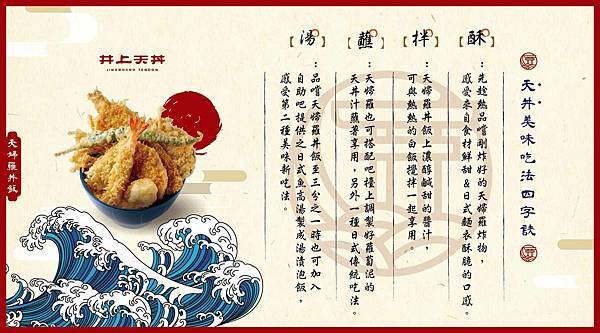 井上天丼
JINGSHANG TENDON
天婦羅丼飯
天丼美味吃法四字訣
【酥】
：先趁熱品嚐剛炸好的天婦羅炸物，
感受來自食材鮮甜&日式麵衣酥脆的口感。
【拌】
：天婦羅丼飯上濃醇鹹甜的醬汁，
可與熱熱的白飯攪拌一起享用。
【蘸】
：天婦羅也可搭配吧檯上調製好蘿蔔泥的
天丼汁蘸著享用，另外一種日式傳統吃法。
【湯】
：品嚐天婦羅丼飯至三分之一時也可加入
自助吧提供之日式魚高湯製成湯漬泡飯，
感受第二種美味新吃法。